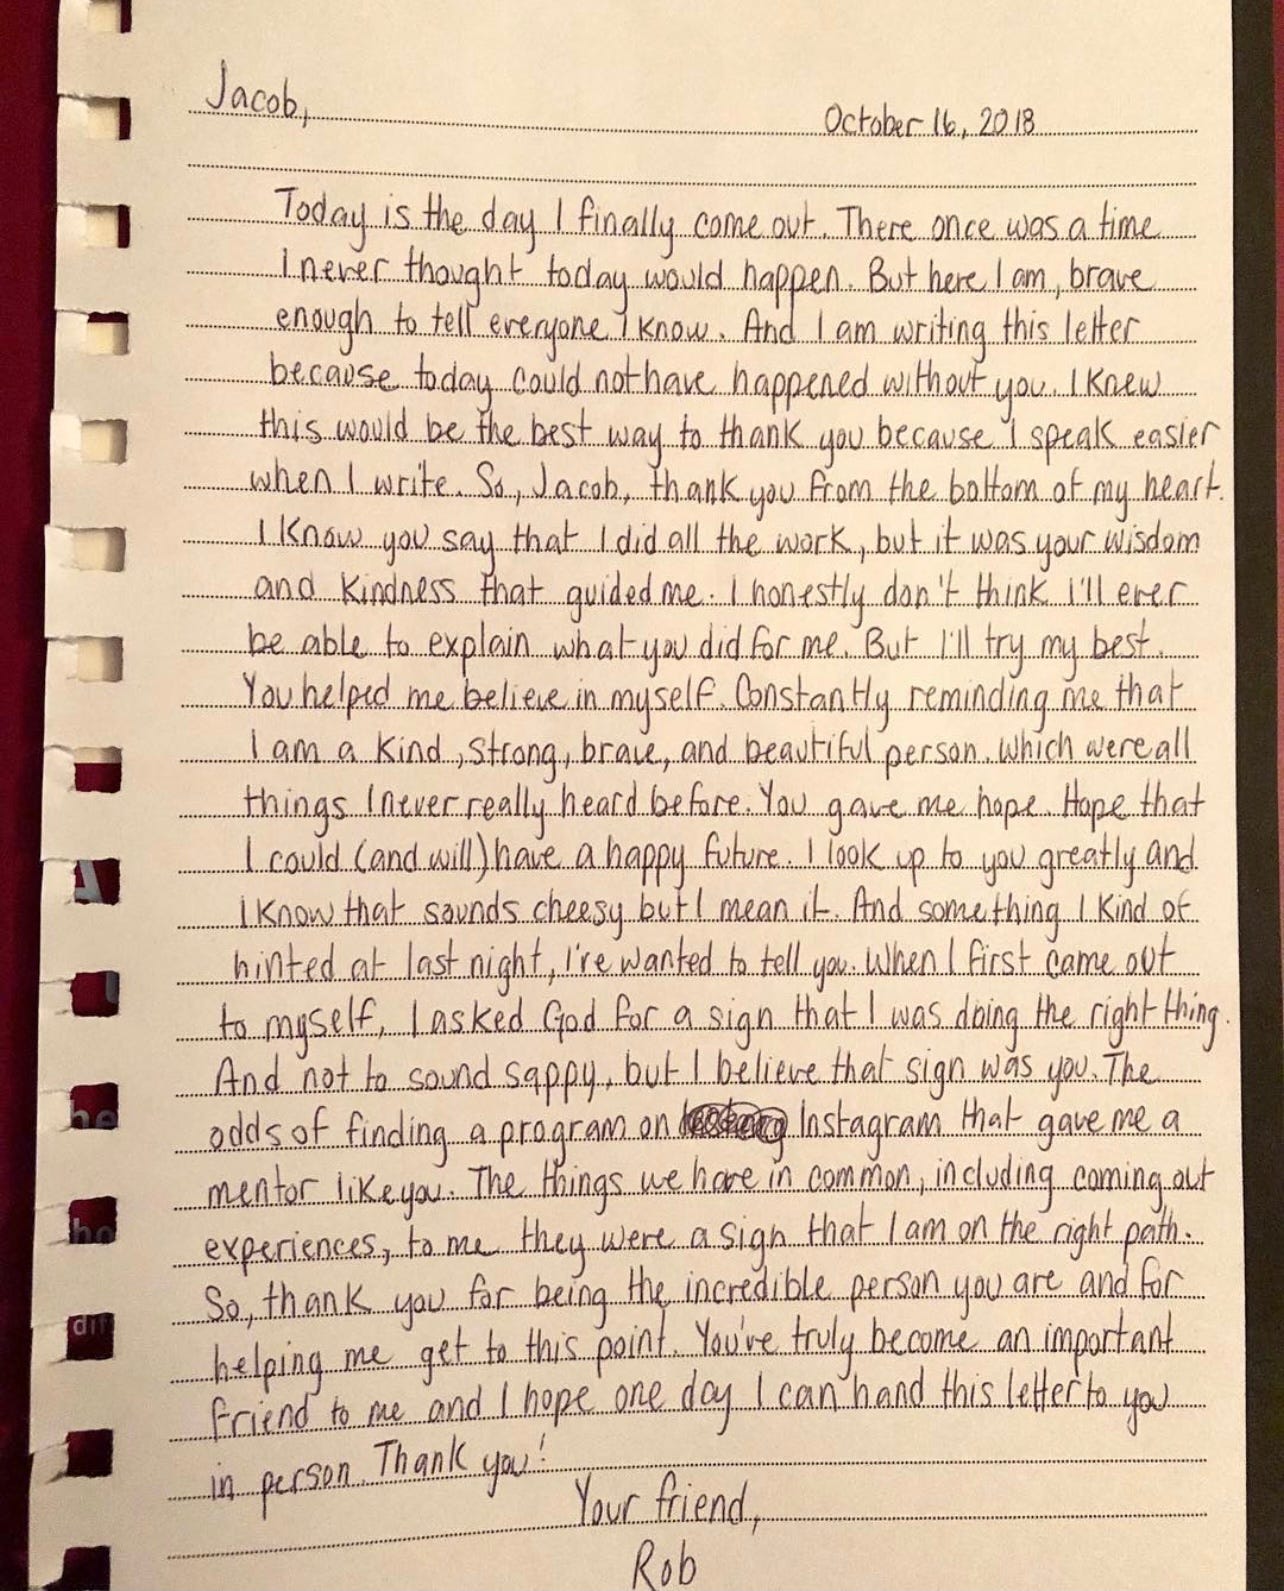 Jacob,
October 16, 2018
Today is the day I finally come out. There once was a time
I never thought today would happen. But here I am, brave
enough to tell everyone I know. And I am writing this letter
because today could not have happened without you. I knew
this would be the best way to thank you because I speak easier
when I write. So, Jacob, thank you from the bottom of my heart.
I know you say that I did all the work, but it was your wisdom
and kindness that guided me. I honestly don't think I'll ever
be able to explain what you did for me. But I'll try my best.
You helped me believe in myself. Constantly reminding me that
I am a kind, strong, brave, and beautiful person. Which were all
things I never really heard before. You gave me hope. Hope that
I could (and will) have a happy future. I look up to you greatly and
I know that sounds cheesy but I mean it. And something I kind of
hinted at last night, I've wanted to tell you. When I first came out
to myself, I asked God for a sign that I was doing the right thing.
And not to sound sappy, but I believe that sign was you. The
odds of finding a program on Instagram that gave me a
mentor like you. The things we have in common, including coming out
experiences, to me they were a sign that I am on the right path.
So, thank you for being the incredible person you are and for
helping me get to this point. You've truly become an important
friend to me and I hope one day I can hand this letter to you
in person. Thank you!
Your friend,
Rob
he
ho
dif